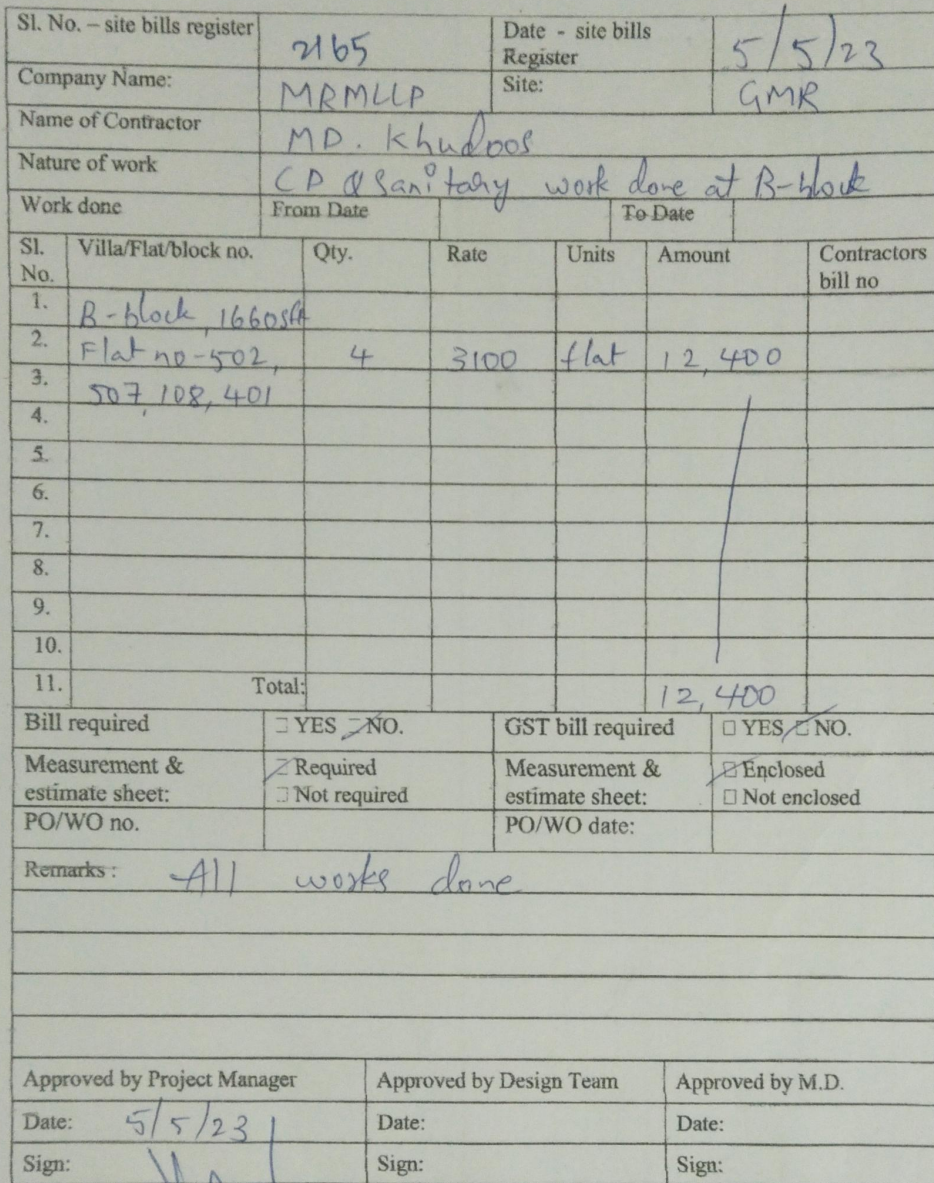 Sl. No. – site bills register 2165 Date - site bills Register 5/5/23
Company Name: MRMLLP Site: GMR
Name of Contractor MD. Khudoos
Nature of work CP & Sanitary work done at B-block
Work done From Date To Date
Sl. No. Villa/Flat/block no. Qty. Rate Units Amount Contractors bill no
1. B-block, 1660sft
2. Flat no-502, 4 3100 flat 12,400
3. 507, 108, 401
4.
5.
6.
7.
8.
9.
10.
11. Total: 12,400
Bill required □ YES □ NO. GST bill required □ YES □ NO.
Measurement & estimate sheet: □ Required □ Not required Measurement & estimate sheet: □ Enclosed □ Not enclosed
PO/WO no. PO/WO date:
Remarks : All works done
Approved by Project Manager Approved by Design Team Approved by M.D.
Date: 5/5/23 Date: Date:
Sign: Sign: Sign: